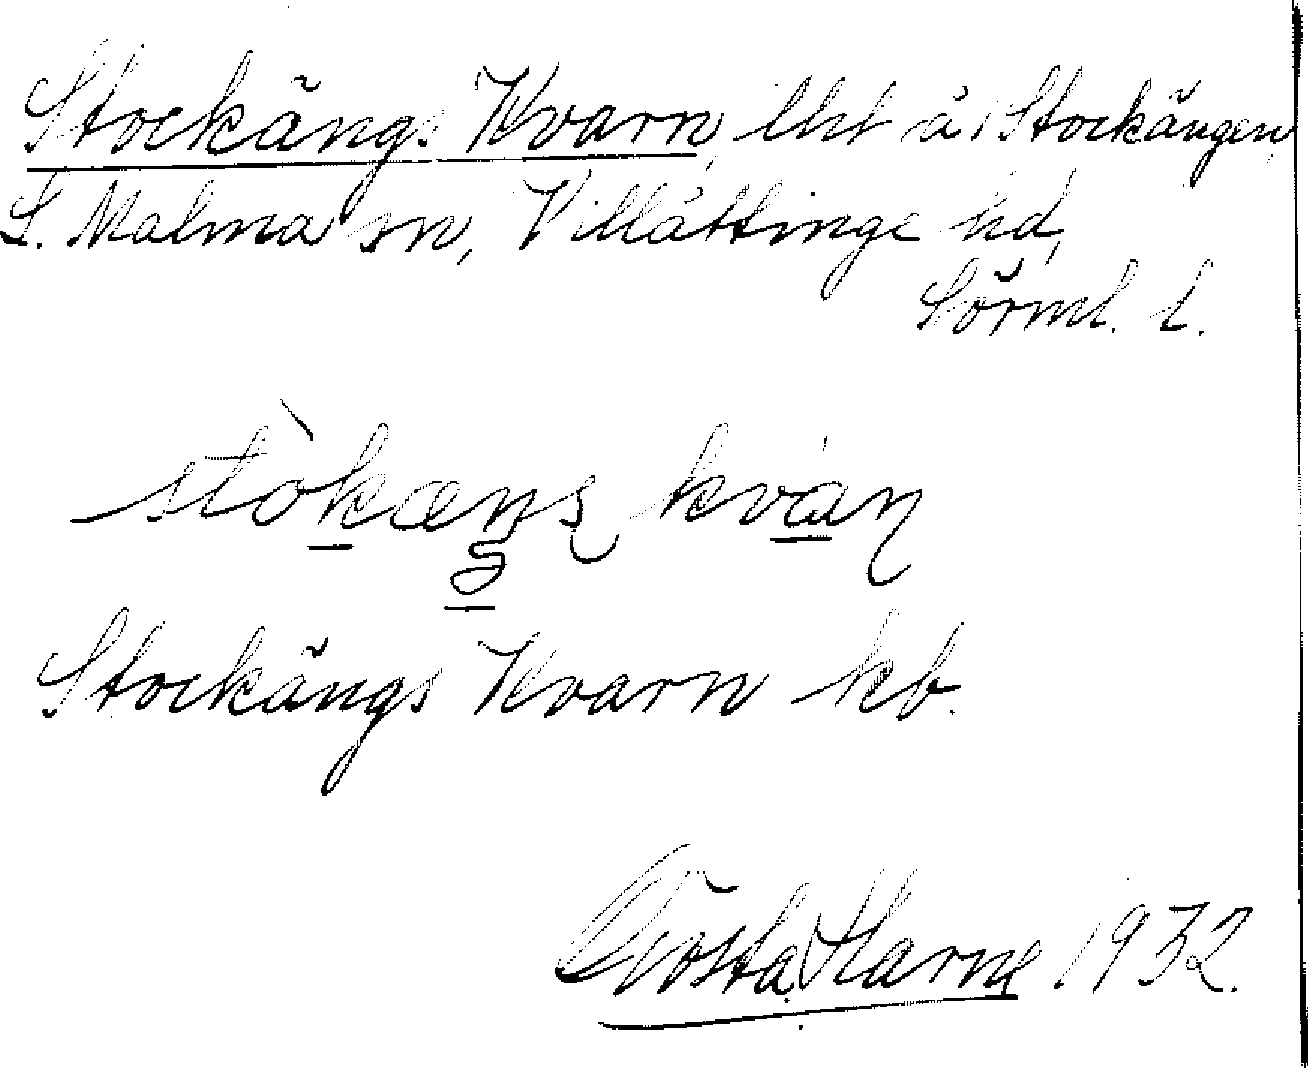 Stockängs Kvarn, lht å Stockängen,
L. Malma sn, Villåttinge hd,
Sörml. l.
stòkæŋs kván
Stockängs Kvarn kb.
Gösta Harne 1932.